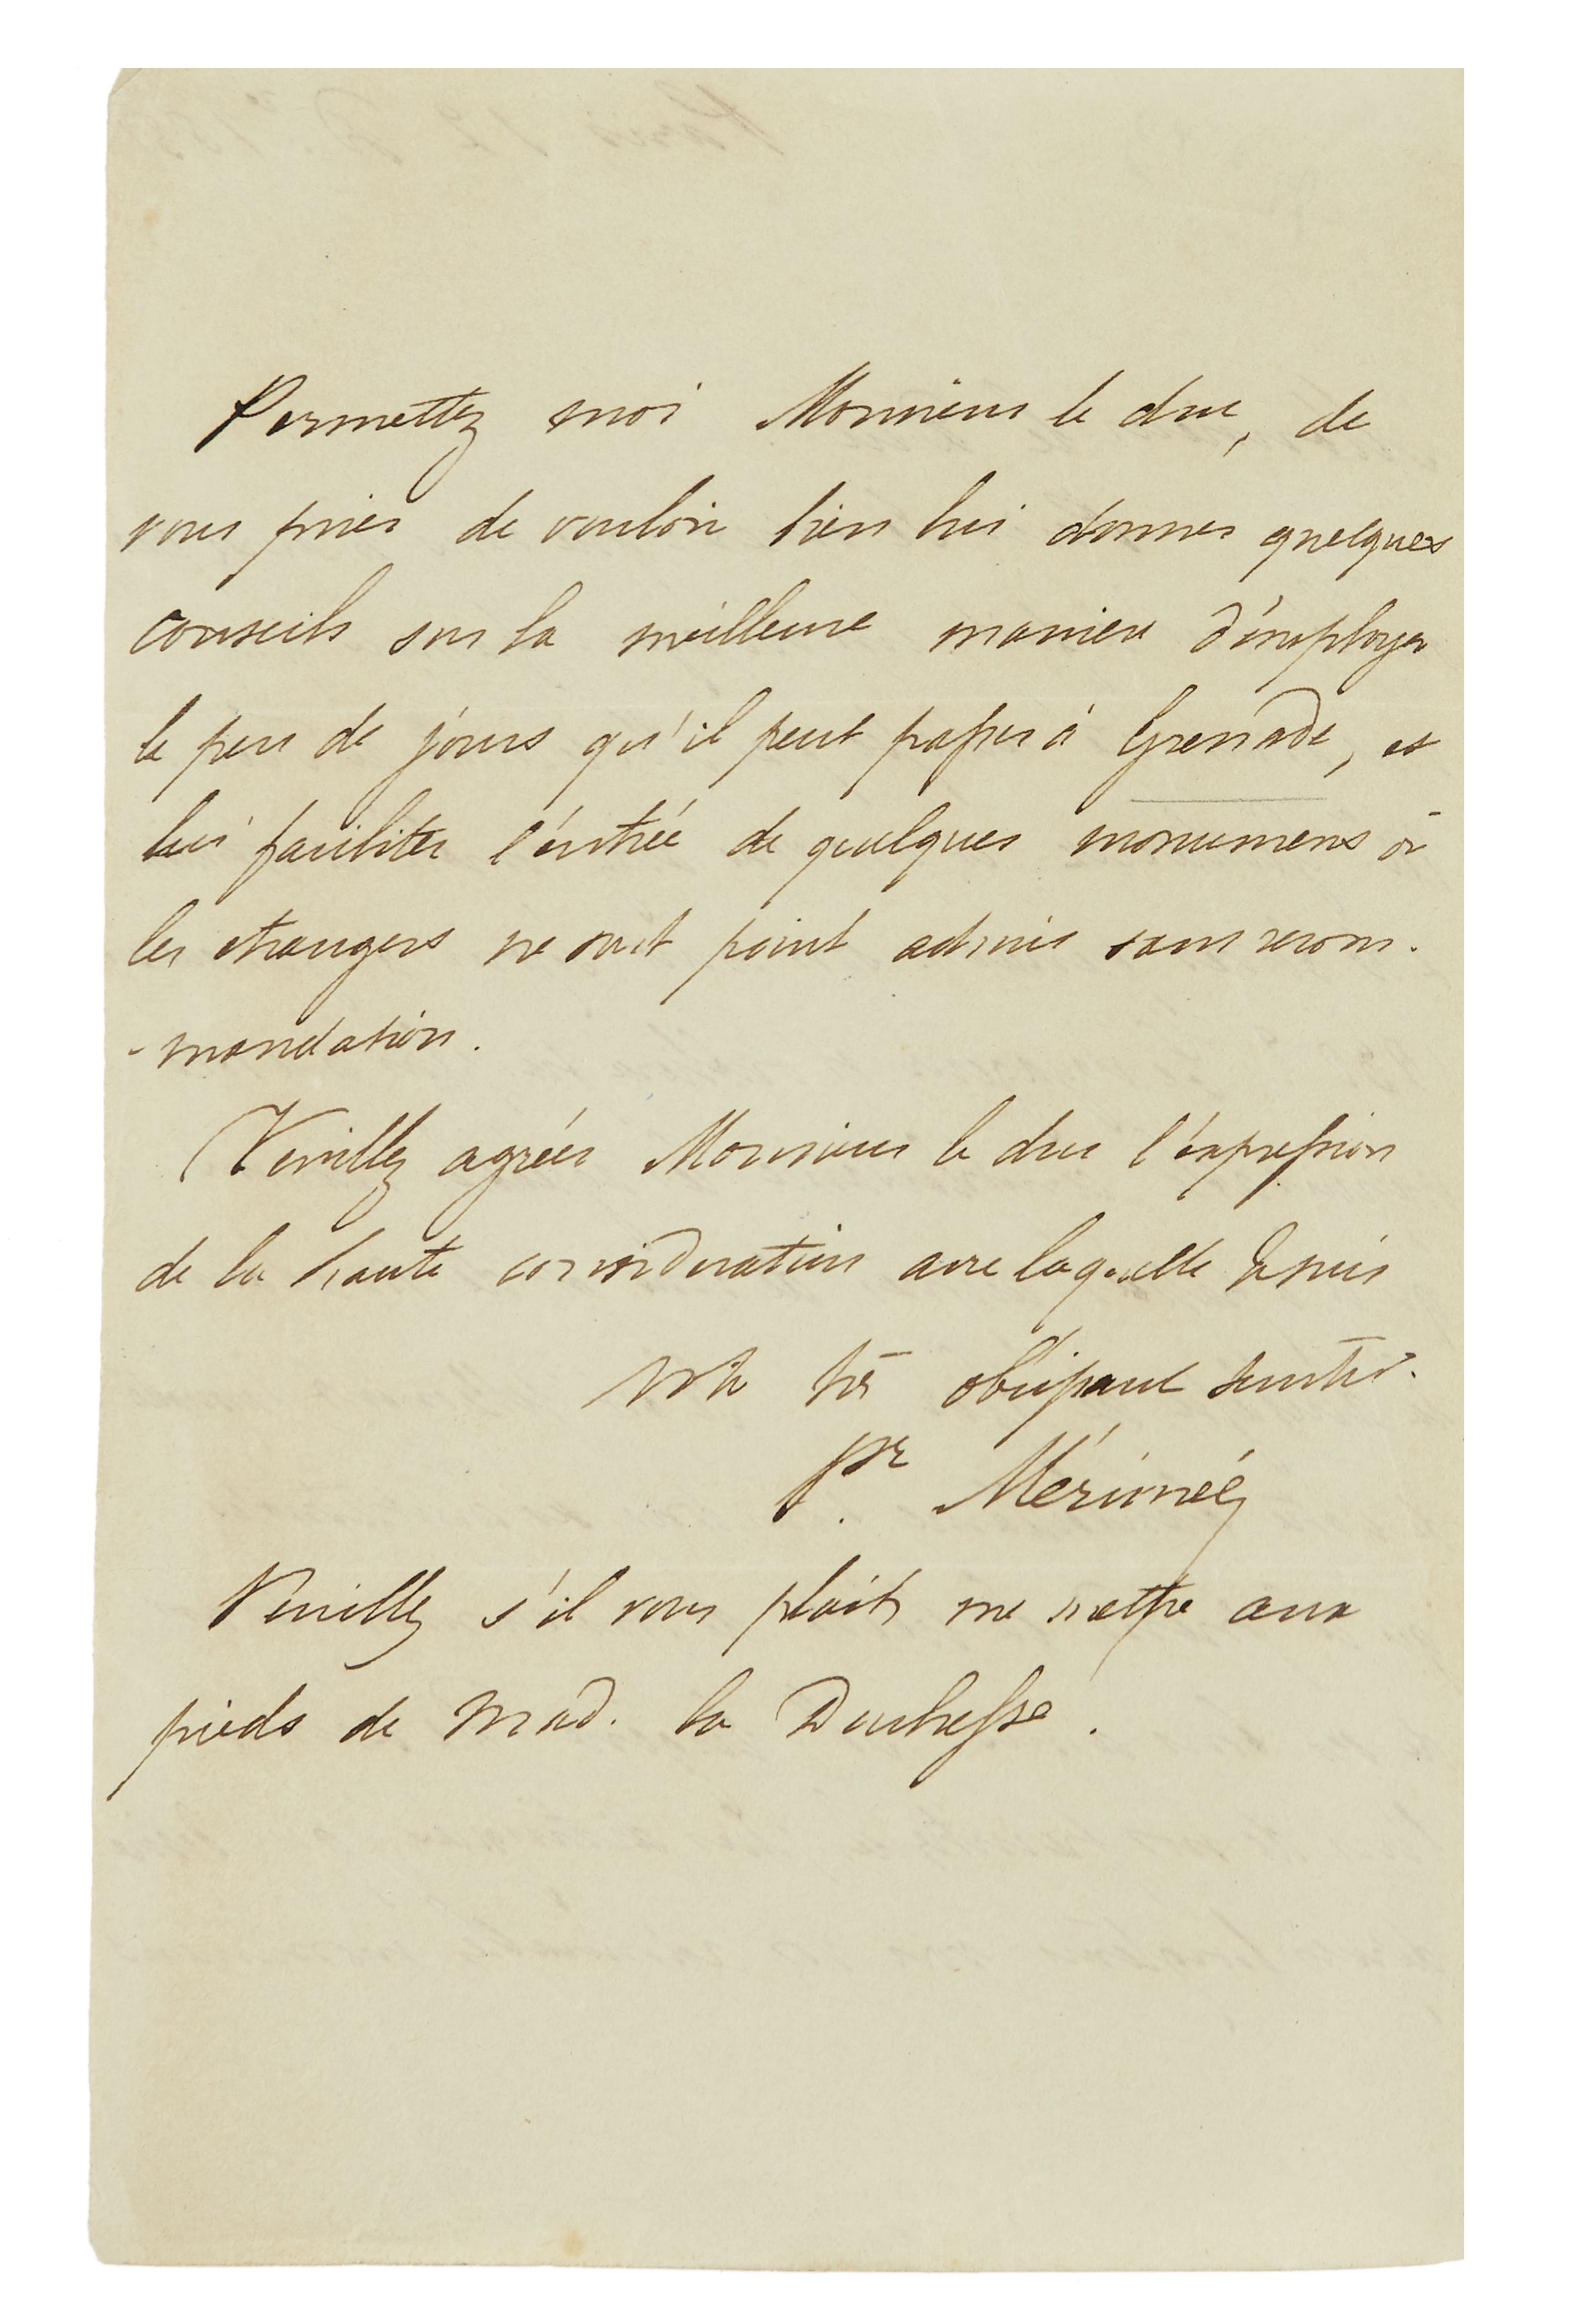 Permettez moi Monsieur le duc, de
vous prier de vouloir bien lui donner quelques
conseils sur la meilleure maniere d'employer
le peu de jours qu'il peut passer à Grenade, et
lui faciliter l'entrée de quelques monumens où
les etrangers ne sont point admis sans recom-
-mandation.
Veuillez agréer Monsieur le duc l'expression
de la haute consideration avec laquelle je suis
votre très obéissant servitr.
Pr. Mérimée
Veuillez s'il vous plait, me mettre aux
pieds de Mad. la Duchesse.